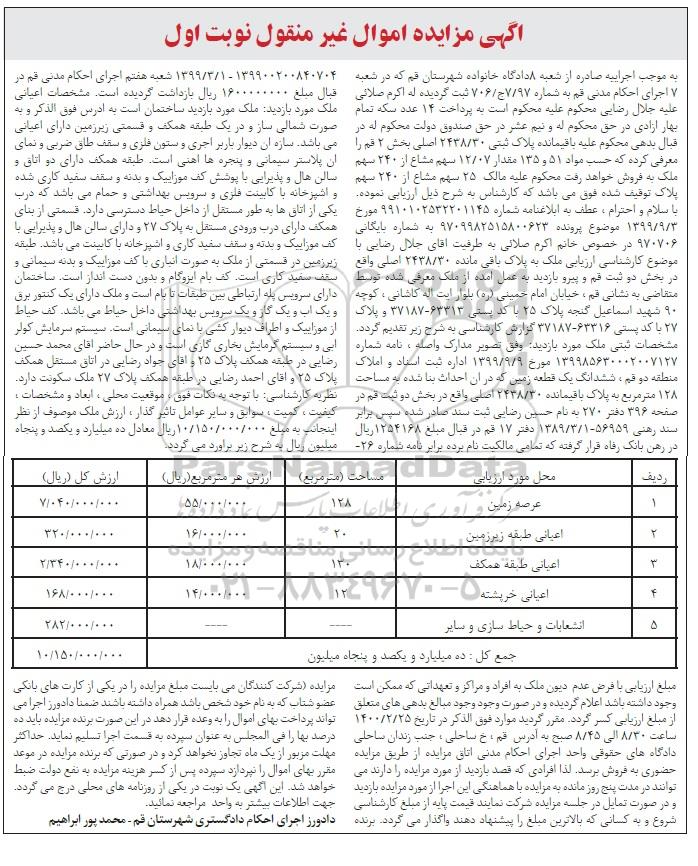 آگهی مزایده اموال غیر منقول نوبت اول
به موجب اجراییه صادره از شعبه ۸دادگاه خانواده شهرستان قم که در شعبه
۷ اجرای احکام مدنی قم به شماره ۷/۹۷ج/۷۰۶ ثبت گردیده له اکرم صلائی
علیه جلال رضایی محکوم علیه محکوم است به پرداخت ۱۴ عدد سکه تمام
بهار ازادی در حق محکوم له و نیم عشر در حق صندوق دولت محکوم له در
قبال بدهی محکوم علیه باقیمانده پلاک ثبتی ۲۴۳۸/۳۰ اصلی بخش ۲ قم را
معرفی کرده که حسب مواد ۵۱ و ۱۳۵ مقدار ۱۲/۰۷ سهم مشاع از ۲۴۰ سهم
ملک به فروش خواهد رفت محکوم علیه مالک ۲۵ سهم مشاع از ۲۴۰ سهم
پلاک توقیف شده فوق می باشد که کارشناس به شرح ذیل ارزیابی نموده.
با سلام و احترام ، عطف به ابلاغنامه شماره ۹۹۱۰۱۰۲۵۳۲۲۰۱۱۴۵ مورخ
۱۳۹۹/۳/۳ موضوع پرونده ۹۷۰۹۹۸۲۵۱۵۸۰۰۶۲۳ به شماره بایگانی
۹۷۰۷۰۶ در خصوص خانم اکرم صلائی به طرفیت اقای جلال رضایی با
موضوع کارشناسی ارزیابی ملک به پلاک باقی مانده ۲۴۳۸/۳۰ اصلی واقع
در بخش دو ثبت قم و پیرو بازدید به عمل امده از ملک معرفی شده توسط
متقاضی به نشانی قم ، خیابان امام خمینی (ره) بلوار ایت اله کاشانی ، کوچه
۹۰ شهید اسماعیل گنجه پلاک ۲۵ با کد پستی ۶۳۳۱۳-۳۷۱۸۷ و پلاک
۲۷ با کد پستی ۶۳۳۱۶-۳۷۱۸۷ گزارش کارشناسی به شرح زیر تقدیم گردد.
مشخصات ثبتی ملک مورد بازدید: وفق تصویر مدارک واصله ، نامه شماره
۱۳۹۹۸۵۶۳۰۰۰۲۰۰۷۱۲۷ مورخ ۱۳۹۹/۹/۹ اداره ثبت اسناد و املاک
منطقه دو قم ، ششدانگ یک قطعه زمین که در ان احداث بنا شده به مساحت
۱۲۸ مترمربع به پلاک باقیمانده ۲۴۳۸/۳۰ اصلی واقع در بخش دو ثبت قم در
صفحه ۳۹۶ دفتر ۲۷۰ به نام حسین رضایی ثبت سند صادر شده سپس برابر
سند رهنی ۵۶۹۵۹-۱۳۸۹/۳/۱ دفتر ۱۷ قم در قبال مبلغ ۱۲۵۴۱۶۸ریال
در رهن بانک رفاه قرار گرفته که تمامی مالکیت نام برده برابر نامه شماره ۲۶-
۱۳۹۹۰۰۲۰۰۸۴۰۷۰۴ - ۱۳۹۹/۳/۱ شعبه هفتم اجرای احکام مدنی قم در
قبال مبلغ ۱۶۰۰۰۰۰۰۰۰ ریال بازداشت گردیده است. مشخصات اعیانی
ملک مورد بازدید: ملک مورد بازدید ساختمان است به ادرس فوق الذکر و به
صورت شمالی ساز و در یک طبقه همکف و قسمتی زیرزمین دارای اعیانی
می باشد. سازه ان دیوار باربر اجری و ستون فلزی و سقف طاق ضربی و نمای
ان پلاستر سیمانی و پنجره ها اهنی است. طبقه همکف دارای دو اتاق و
سالن هال و پذیرایی با پوشش کف موزاییک و بدنه و سقف سفید کاری شده
و اشپزخانه با کابینت فلزی و سرویس بهداشتی و حمام می باشد که درب
یکی از اتاق ها به طور مستقل از داخل حیاط دسترسی دارد. قسمتی از بنای
همکف دارای درب ورودی مستقل به پلاک ۲۷ و دارای سالن هال و پذیرایی با
کف موزاییک و بدنه و سقف سفید کاری و اشپزخانه با کابینت می باشد. طبقه
زیرزمین در قسمتی از ملک به صورت انباری با کف موزاییک و بدنه سیمانی و
سقف سفید کاری است. کف بام ایزوگام و بدون دست انداز است. ساختمان
دارای سرویس پله ارتباطی بین طبقات تا بام است و ملک دارای یک کنتور برق
و یک اب و یک گاز و یک سرویس بهداشتی داخل حیاط می باشد. کف حیاط
از موزاییک و اطراف دیوار کشی با نمای سیمانی است. سیستم سرمایش کولر
ابی و سیستم گرمایش بخاری گازی است و در حال حاضر اقای محمد حسین
رضایی در طبقه همکف پلاک ۲۵ و اقای جواد رضایی در اتاق مستقل همکف
پلاک ۲۵ و اقای احمد رضایی در طبقه همکف پلاک ۲۷ ملک سکونت دارد.
نظریه کارشناسی: با توجه به نکات فوق ، موقعیت محلی ، ابعاد و مشخصات ،
کیفیت ، کمیت ، سوابق و سایر عوامل تاثیر گذار ، ارزش ملک موصوف از نظر
اینجانب به مبلغ ۱۰/۱۵۰/۰۰۰/۰۰۰ریال معادل ده میلیارد و یکصد و پنجاه
میلیون ریال به شرح زیر براورد می گردد.
ردیف محل مورد ارزیابی مساحت (مترمربع) ارزش هر مترمربع(ریال) ارزش کل (ریال)
۱ عرصه زمین ۱۲۸ ۵۵/۰۰۰/۰۰۰ ۷/۰۴۰/۰۰۰/۰۰۰
۲ اعیانی طبقه زیرزمین ۲۰ ۱۶/۰۰۰/۰۰۰ ۳۲۰/۰۰۰/۰۰۰
۳ اعیانی طبقه همکف ۱۳۰ ۱۸/۰۰۰/۰۰۰ ۲/۳۴۰/۰۰۰/۰۰۰
۴ اعیانی خرپشته ۱۲ ۱۴/۰۰۰/۰۰۰ ۱۶۸/۰۰۰/۰۰۰
۵ انشعابات و حیاط سازی و سایر ---- ---- ۲۸۲/۰۰۰/۰۰۰
جمع کل : ده میلیارد و یکصد و پنجاه میلیون ۱۰/۱۵۰/۰۰۰/۰۰۰
ParsNamadData
پایگاه اطلاع رسانی مناقصه و مزایده
۰۲۱-۸۸۳۴۹۶۷۰-۵
مبلغ ارزیابی با فرض عدم دیون ملک به افراد و مراکز و تعهداتی که ممکن است
وجود داشته باشد اعلام گردیده و در صورت وجود وجود مبالغ بدهی های متعلق
از مبلغ ارزیابی کسر گردد. مقرر گردید موارد فوق الذکر در تاریخ ۱۴۰۰/۲/۲۵
ساعت ۸/۳۰ الی ۸/۴۵ صبح به آدرس قم ، خ ساحلی ، جنب زندان ساحلی
دادگاه های حقوقی واحد اجرای احکام مدنی اتاق مزایده از طریق مزایده
حضوری به فروش برسد. لذا افرادی که قصد بازدید از مورد مزایده را دارند می
توانند در مدت پنج روز مانده به مزایده با هماهنگی این اجرا از مورد مزایده بازدید
و در صورت تمایل در جلسه مزایده شرکت نمایند قیمت پایه از مبلغ کارشناسی
شروع و به کسانی که بالاترین مبلغ را پیشنهاد دهند واگذار می گردد. برنده
مزایده (شرکت کنندگان می بایست مبلغ مزایده را در یکی از کارت های بانکی
عضو شتاب که به نام خود شخص باشد همراه داشته باشند ضمنا دادورز اجرا می
تواند پرداخت بهای اموال را به وعده قرار دهد در این صورت برنده مزایده باید ده
درصد بها را فی المجلس به عنوان سپرده به قسمت اجرا تسلیم نماید. حداکثر
مهلت مزبور از یک ماه تجاوز نخواهد کرد و در صورتی که برنده مزایده در موعد
مقرر بهای اموال را نپردازد سپرده پس از کسر هزینه مزایده به نفع دولت ضبط
خواهد شد. این آگهی یک نوبت در یکی از روزنامه های محلی درج می گردد.
جهت اطلاعات بیشتر به واحد مراجعه نمائید.
دادورز اجرای احکام دادگستری شهرستان قم - محمد پور ابراهیم